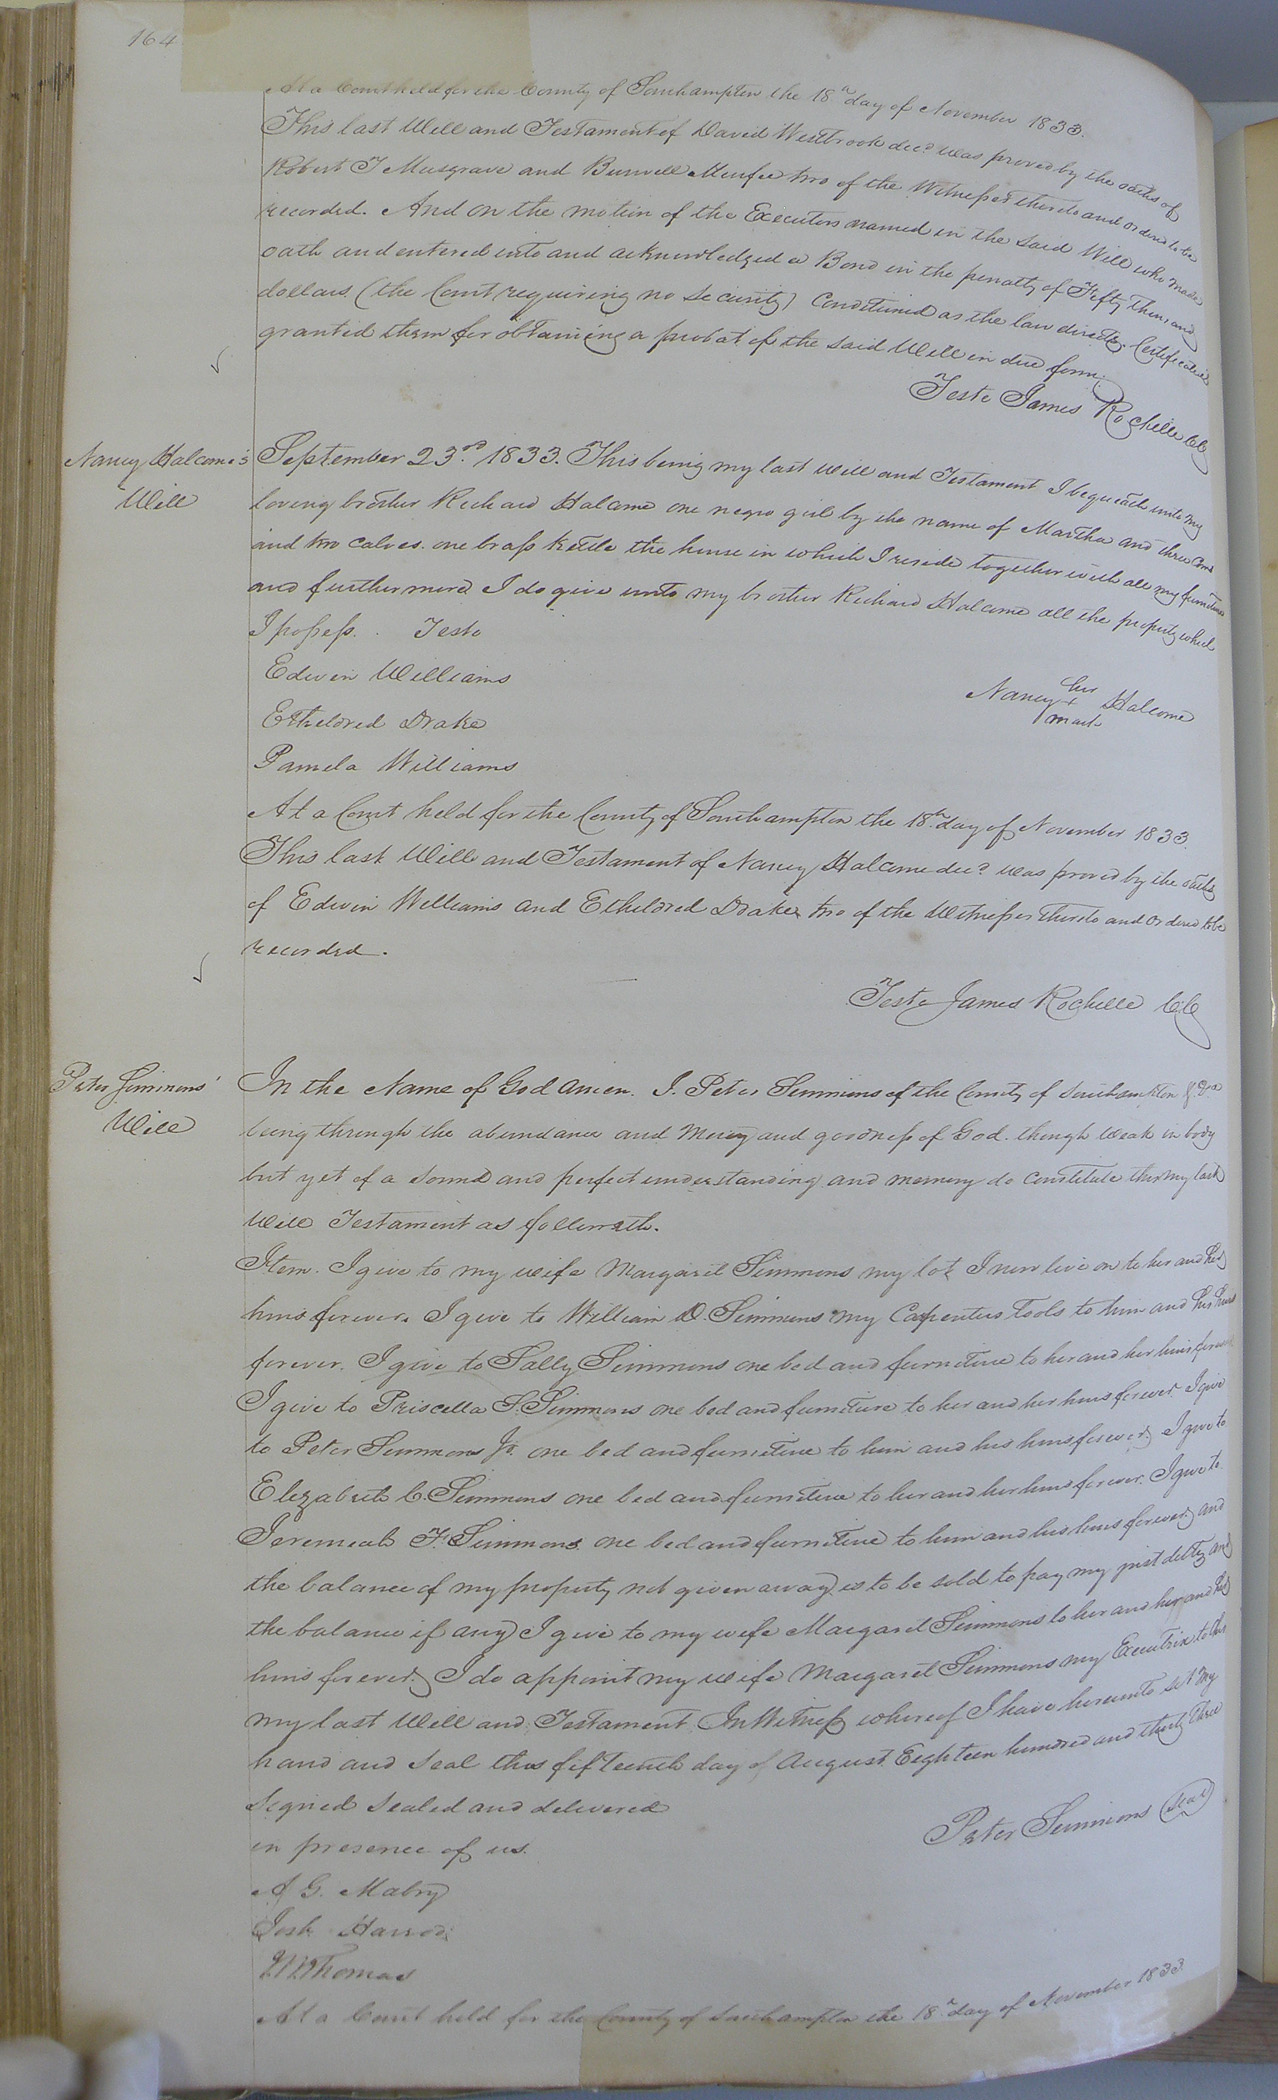 164
At a Court held for the County of Southampton the 18th day of November 1833.
This last Will and Testament of David Westbrook decd. was proved by the oaths of
Robert T Musgrave and Burwell two of the Witnesses thereto and ordered to be
recorded. And on the motion of the Executors named in the said Will who made
oath and entered into and acknowledged a Bond in the penalty of Fifty thousand
dollars (the Court requiring no security) Conditioned as the law directs. Certificate is
granted them for obtaining a probat of the said Will in due form.
Teste James Rochelle CC
Nancy Halcome's
Will
September 23rd. 1833. This being my last will and Testament I bequeath unto my
loving brother Richard Halcome one negro girl by the name of Martha and three Cows
and two calves. one brass kettle the house in which I reside together with all my furniture
and furthermore I do give unto my brother Richard Halcome all the property which
I possess. Teste
Edwin Williams
Etheldred Drake
Pamela Williams
her
Nancy + Halcome
mark
At a Court held for the County of Southampton the 18th day of November 1833.
This last Will and Testament of Nancy Halcome decd. was proved by the oaths
of Edwin Williams and Etheldred Drake two of the Witnesses thereto and ordered to be
recorded.
Teste James Rochelle CC
Peter Simmons'
Will
In the Name of God amen. I. Peter Simmons of the County of Southampton & Va
being through the abundance and Mercy and goodness of God. though weak in body
but yet of a sound and perfect understanding and memory do constitute this my last
Will Testament as followeth.
Item. I give to my wife Margaret Simmons my lot I now live on to her and her
heirs forever. I give to William D. Simmons my Carpenters Tools to him and his heirs
forever. I give to Sally Simmons one bed and furniture to her and her heirs forever
I give to Priscella S. Simmons one bed and furniture to her and her heirs forever. I give
to Peter Simmons Jr. one bed and furniture to him and his heirs forever. I give to
Elizabeth C. Simmons one bed and furniture to her and her heirs forever. I give to
Jeremeah F. Simmons one bed and furniture to him and his heirs forever. and
the balance of my property not given away is to be sold to pay my just debts, and
the balance if any I give to my wife Margaret Simmons to her and her and her
heirs forever. I do appoint my wife Margaret Simmons my Executrix to this
my last Will and Testament In Witness whereof I have hereunto set my
hand and seal this fifteenth day of August Eighteen hundred and thirty three
Signed sealed and delivered
in presence of us.
Peter Simmons (Seal)
A G. Mabry
Josh Harrod
Thomas
At a Court held for the County of Southampton the 18th day of November 1833.